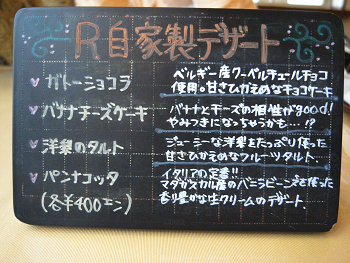 R自家製デザート
ガトーショコラ
ベルギー産クーベルチュールチョコ
使用。甘さひかえめなチョコケーキ
バナナチーズケーキ
バナナとチーズの相性がgood!
やみつきになっちゃうかも…!?
洋梨のタルト
ジューシーな洋梨をたっぷり使った
甘さひかえめなフルーツタルト
パンナコッタ
(各¥400エン)
イタリアの定番!!
マダガスカル産のバニラビーンズを使った
香り豊かな生クリームのデザート